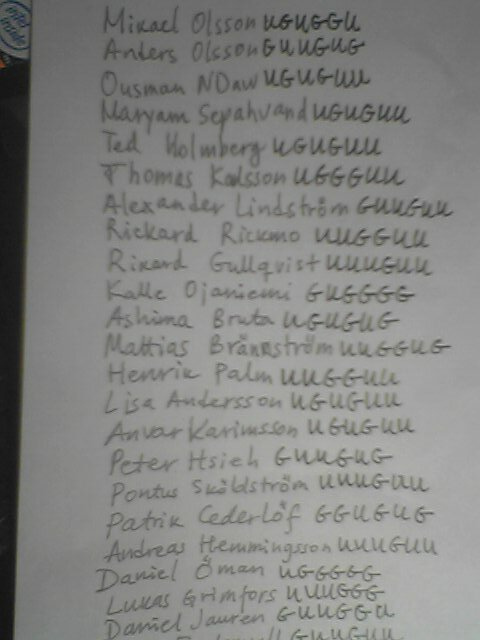 Mikael Olsson UGUGGU
Anders Olsson GUUGUG
Ousman NDaw UGUGUU
Maryam Sepahvand UGUGUU
Ted Holmberg UGUGUU
Thomas Karlsson UGGGUU
Alexander Lindström GUUGUU
Rickard Rickmo UUGGUU
Rikard Gullqvist UUUGUU
Kalle Ojaniemi GUGGGG
Ashima Bruta UGUGUG
Mattias Brännström UUGGUG
Henrik Palm UUGGUU
Lisa Andersson UGUGUU
Anvar Karimsson UGUGUU
Peter Hsieh GUUGUG
Pontus Sköldström UUUGUU
Patrik Cederlöf GGUGUG
Andreas Hemmingsson UUUGUU
Daniel Öman UGGGGG
Lukas Grimfors UUUGGG
Daniel Jauren GUUGGU
GUUGUU